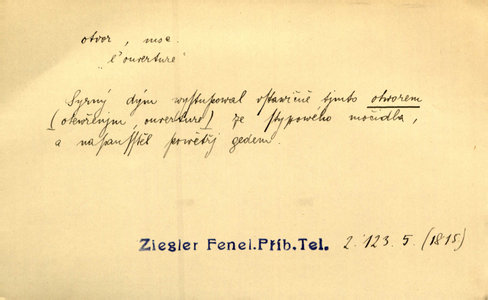 otvor, msc.
„l'ouverture"
Syrný dým wystupowal vstawičně tjmto otworem
(otewřeným, ouverture) ze stypowého močidla,
a napausstěl powětřj gedem.
Ziegler Fenel.Příb.Tel. 2. 123. 5. (1815)